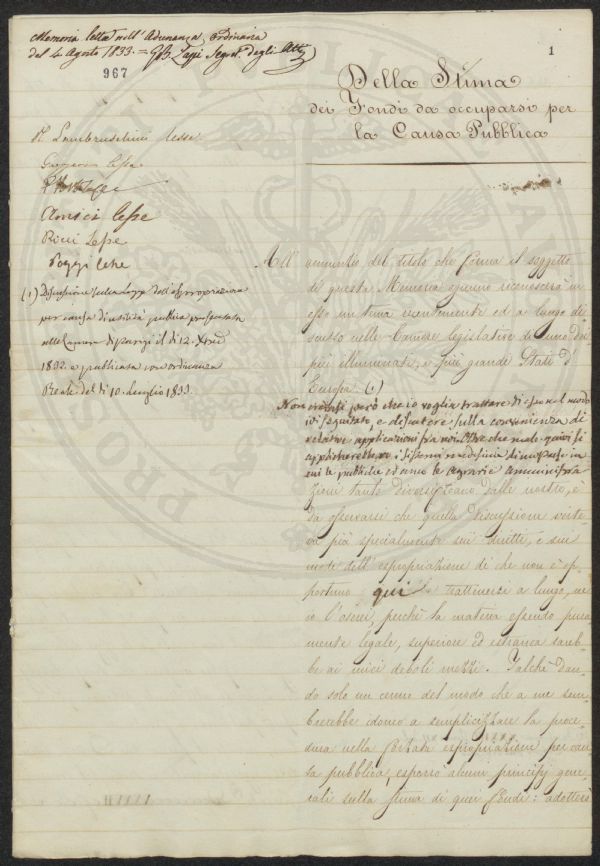 Memoria letta nell'Adunanza ordinaria
del 4 Agosto 1833. = GB. Zappi Segret. degli Atti
967
1
Della Stima
dei Fondi da occuparsi per
la Causa Pubblica
Lambruschini lesse
lesse
Amici lesse
Ricci Lesse
Poggi lesse
(1) Discussione sulla Legge dell'espropriazione
per causa di utilità pubblica presentata
alla Camera di parigi il dì 12. Xbre
1832. e pubblicata con ordinanza
Reale del dì 10. Luglio 1833.
All' annunzio del titolo che forma il soggetto
di questa Memoria ognuno riconoscerà in
esso un tema recentemente ed a lungo di-
scusso nelle Camere legislative di uno dei
più illuminati, e più grandi Stati d'
Europa (1)
Non credasi però che io voglia trattare di esso nel modo
ivi seguitato, e discutere sulla convenienza di
relative applicazioni fra noi. Oltre che male quivi si
applicherebbero i discorsi medesimi di un paese in
cui le pubbliche ed anco le agrarie amministra
zioni tanto diversificano dalle nostre, è
da osservarsi che quella discussione verte-
va più specialmente sui diritti, e sui
modi dell'espropriazione di che non è op-
portuno qui trattenersi a lungo, ne
io l'oserei, perchè la materia essendo pura-
mente legale, superiore ed estranea sareb-
be ai miei deboli mezzi. Talchè dan-
do solo un cenno del modo che a me sem-
brerebbe idoneo a semplicizzare la proce-
dura nella forzata espropriazione per cau-
sa pubblica, esporrò alcuni principj gene-
rali sulla stima di quei fondi: adotterò